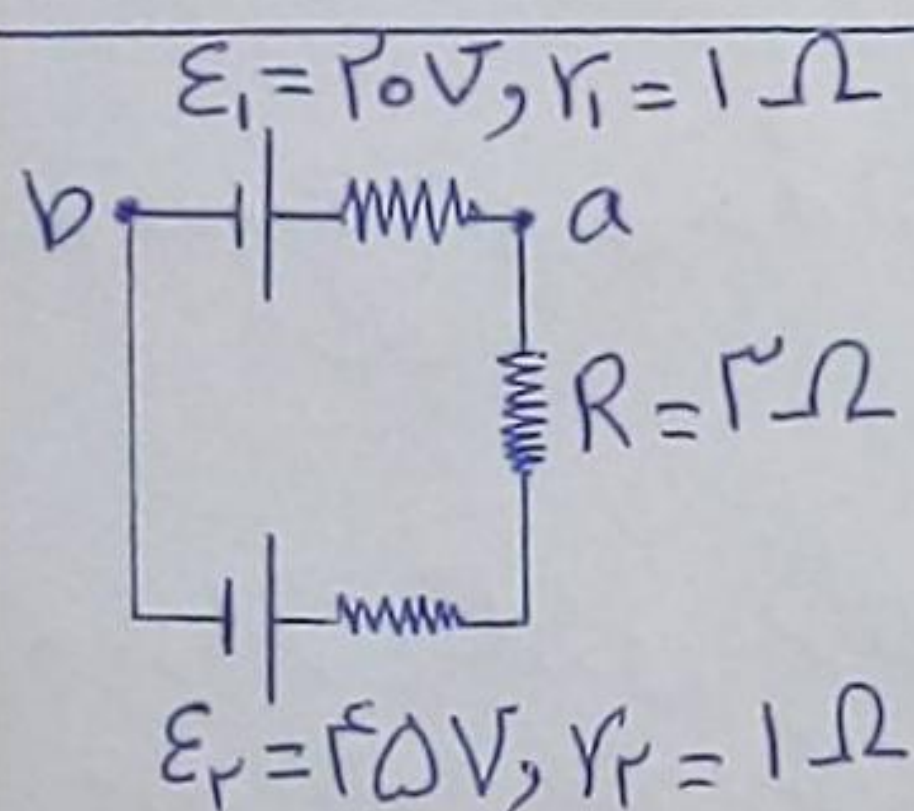 ε₁ = ۲۰V, r₁ = ۱ Ω
b a
R = ۳Ω
ε۲ = ۴۵V, r۲ = ۱ Ω